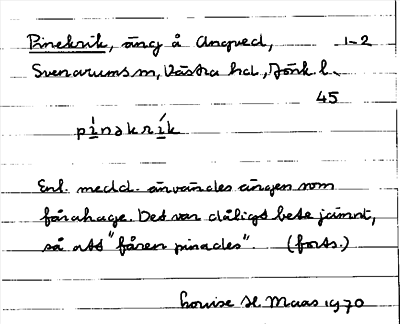 Pinekrik, äng å Angved, 1-2
Svenarums sn, Västra hd, Jönk. l.
45
pinəkrik
Enl. medd. användes ängen som
fårahage. Det var dåligt bete jämnt,
så att "fåren pinades". (forts.)
Louise H. Maas 1970